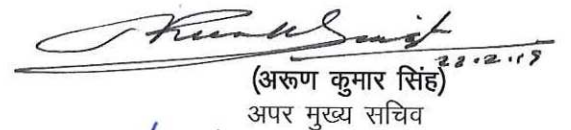 22.2.19
(अरूण कुमार सिंह)
अपर मुख्य सचिव